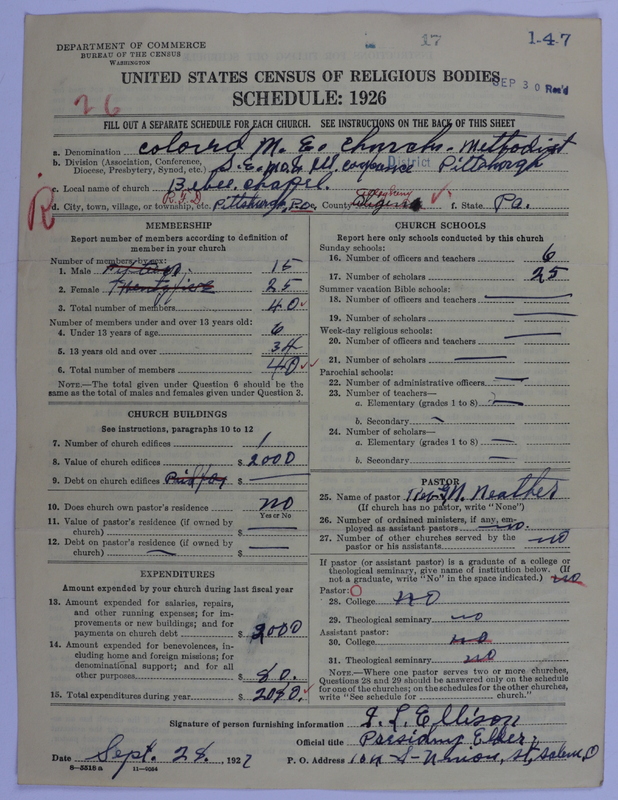 1-4-7
27
DEPARTMENT OF COMMERCE
BUREAU OF THE CENSUS
WASHINGTON
UNITED STATES CENSUS OF RELIGIOUS BODIES
SEP 30 Rec'd
SCHEDULE: 1926
26
FILL OUT A SEPARATE SCHEDULE FOR EACH CHURCH. SEE INSTRUCTIONS ON THE BACK OF THIS SHEET
a. Denomination Colored M. E. Church. Methodist
b. Division (Association, Conference, Diocese, Presbytery, Synod, etc.) S. E. District Pittsburgh
c. Local name of church Bebee. chapel.
R.F.D
d. City, town, village, or township, etc. Pittsburgh, Pa e. County f. State Pa.
R
MEMBERSHIP
Report number of members according to definition of member in your church
Number of members by sex:
1. Male 15
2. Female 25
3. Total number of members 40
Number of members under and over 13 years old:
4. Under 13 years of age 6
5. 13 years old and over 34
6. Total number of members 40
NOTE.—The total given under Question 6 should be the same as the total of males and females given under Question 3.
CHURCH BUILDINGS
See instructions, paragraphs 10 to 12
7. Number of church edifices 1
8. Value of church edifices $ 2000
9. Debt on church edifices $
10. Does church own pastor's residence? no
Yes or No
11. Value of pastor's residence (if owned by church) $
12. Debt on pastor's residence (if owned by church) $
EXPENDITURES
Amount expended by your church during last fiscal year
13. Amount expended for salaries, repairs, and other running expenses; for improvements or new buildings; and for payments on church debt $ 2000
14. Amount expended for benevolences, including home and foreign missions; for denominational support; and for all other purposes $ 80.
15. Total expenditures during year $ 2080.
CHURCH SCHOOLS
Report here only schools conducted by this church
Sunday schools:
16. Number of officers and teachers 6
17. Number of scholars 25
Summer vacation Bible schools:
18. Number of officers and teachers
19. Number of scholars
Week-day religious schools:
20. Number of officers and teachers
21. Number of scholars
Parochial schools:
22. Number of administrative officers
23. Number of teachers—
a. Elementary (grades 1 to 8)
b. Secondary
24. Number of scholars—
a. Elementary (grades 1 to 8)
b. Secondary
PASTOR
25. Name of pastor Rev. M. Neather
(If church has no pastor, write "None")
26. Number of ordained ministers, if any, employed as assistant pastors no.
27. Number of other churches served by the pastor or his assistants no
If pastor (or assistant pastor) is a graduate of a college or theological seminary, give name of institution below. (If not a graduate, write "No" in the space indicated.) no
Pastor:
28. College no
29. Theological seminary no
Assistant pastor:
30. College no
31. Theological seminary no
NOTE.—Where one pastor serves two or more churches, Questions 28 and 29 should be answered only on the schedule for one of the churches; on the schedules for the other churches, write "See schedule for church."
Signature of person furnishing information J. L. Ellison
Official title Presiding Elder,
Date Sept. 28, 1927 P. O. Address Union, St, Salem, O
8-5518a 11-9034